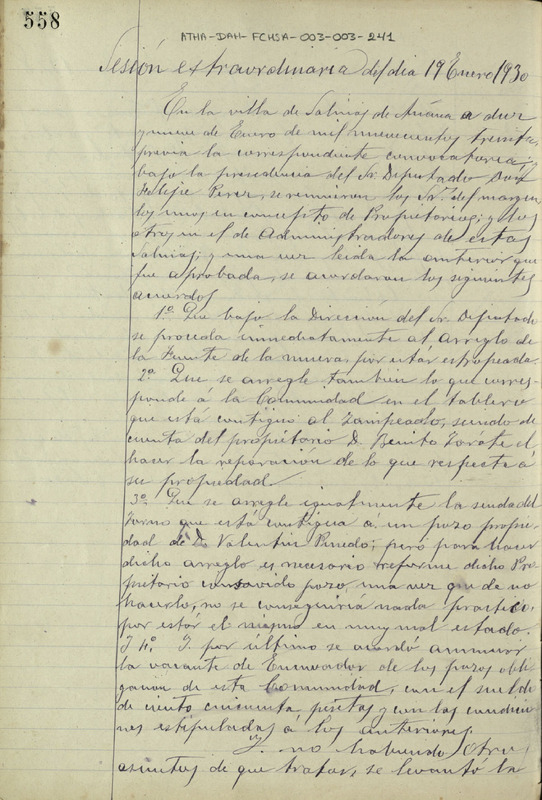 558
ATHA-DAH-FCHSA-003-003-241
Sesión extraordinaria del dia 19 Enero 1930
En la villa de Salinas de Añana a diez
y nueve de Enero de mil novecientos treinta,
previa la correspondiente convocatoria y
bajo la presidencia del Sr. Diputado Don
Felipe Perez, se reunieron los Sres. del margen
los unos en concepto de Propietarios; y los
otros en el de Administradores de estas
Salinas; y una vez leida la anterior que
fue aprobada, se acordaron los siguientes
acuerdos
1º. Que bajo la Dirección del Sr. Diputado
se proceda inmediatamente al arreglo de
la Fuente de la muera, por estar estropeada.
2º. Que se arregle tambien lo que corres-
ponde a la Comunidad en el tablero
que está contiguo al Zampeado, siendo de
cuenta del propietario D. Benito Zarate el
hacer la reparación de lo que respecta á
su propiedad.
3º. Que se arregle igualmente la senda del
Torno que está contigua á un pozo propie-
dad de D. Valentin Pinedo; peró para hacer
dicho arreglo es necesario reforme dicho Pro-
pietario consavido pozo, una vez que de no
hacerlo, no se conseguiria nada practico,
por estár el mismo en muy mal estado.
Y 4º. Y por último se acordó anunciar
la vacante de Envocador de los pozos obli-
ganon de esta Comunidad, con el sueldo
de ciento cincuenta pesetas y con las condicio-
nes estipuladas á los anteriores.
Y no habiendo otros
asuntos de que tratar, se levantó la